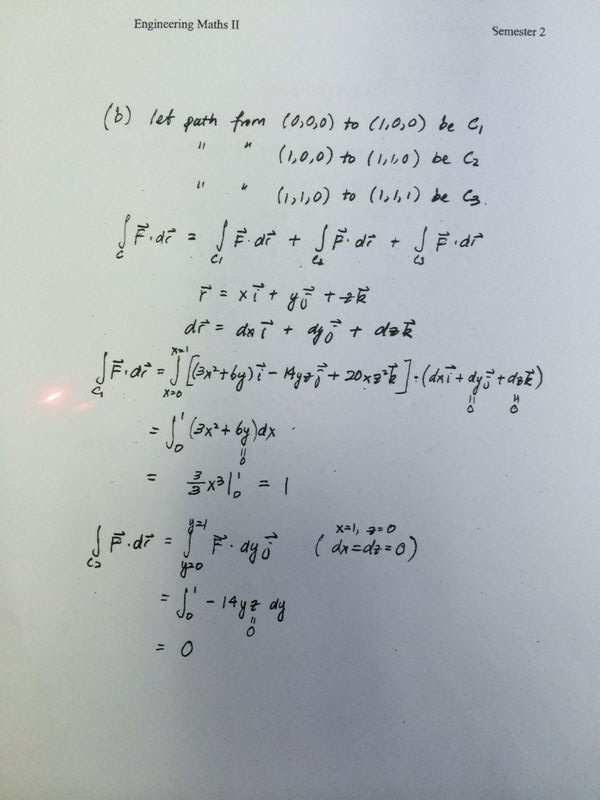 Engineering Maths II
Semester 2
(b) let path from (0,0,0) to (1,0,0) be C₁
" " (1,0,0) to (1,1,0) be C₂
" " (1,1,0) to (1,1,1) be C₃.
∫_C F⃗·dr⃗ = ∫_C₁ F⃗·dr⃗ + ∫_C₂ F⃗·dr⃗ + ∫_C₃ F⃗·dr⃗
r⃗ = x i⃗ + y j⃗ + z k⃗
dr⃗ = dx i⃗ + dy j⃗ + dz k⃗
∫_C₁ F⃗·dr⃗ = ∫_{x=0}^{x=1} [(3x²+6y) i⃗ − 14yz j⃗ + 20xz² k⃗]·(dx i⃗ + dy j⃗ + dz k⃗)
" "
0 0
= ∫₀¹ (3x² + 6y) dx
"
0
= 3/3 x³|₀¹ = 1
∫_C₂ F⃗·dr⃗ = ∫_{y=0}^{y=1} F⃗·dy j⃗ (x=1, z=0
dx=dz=0)
= ∫₀¹ − 14yz dy
"
0
= 0